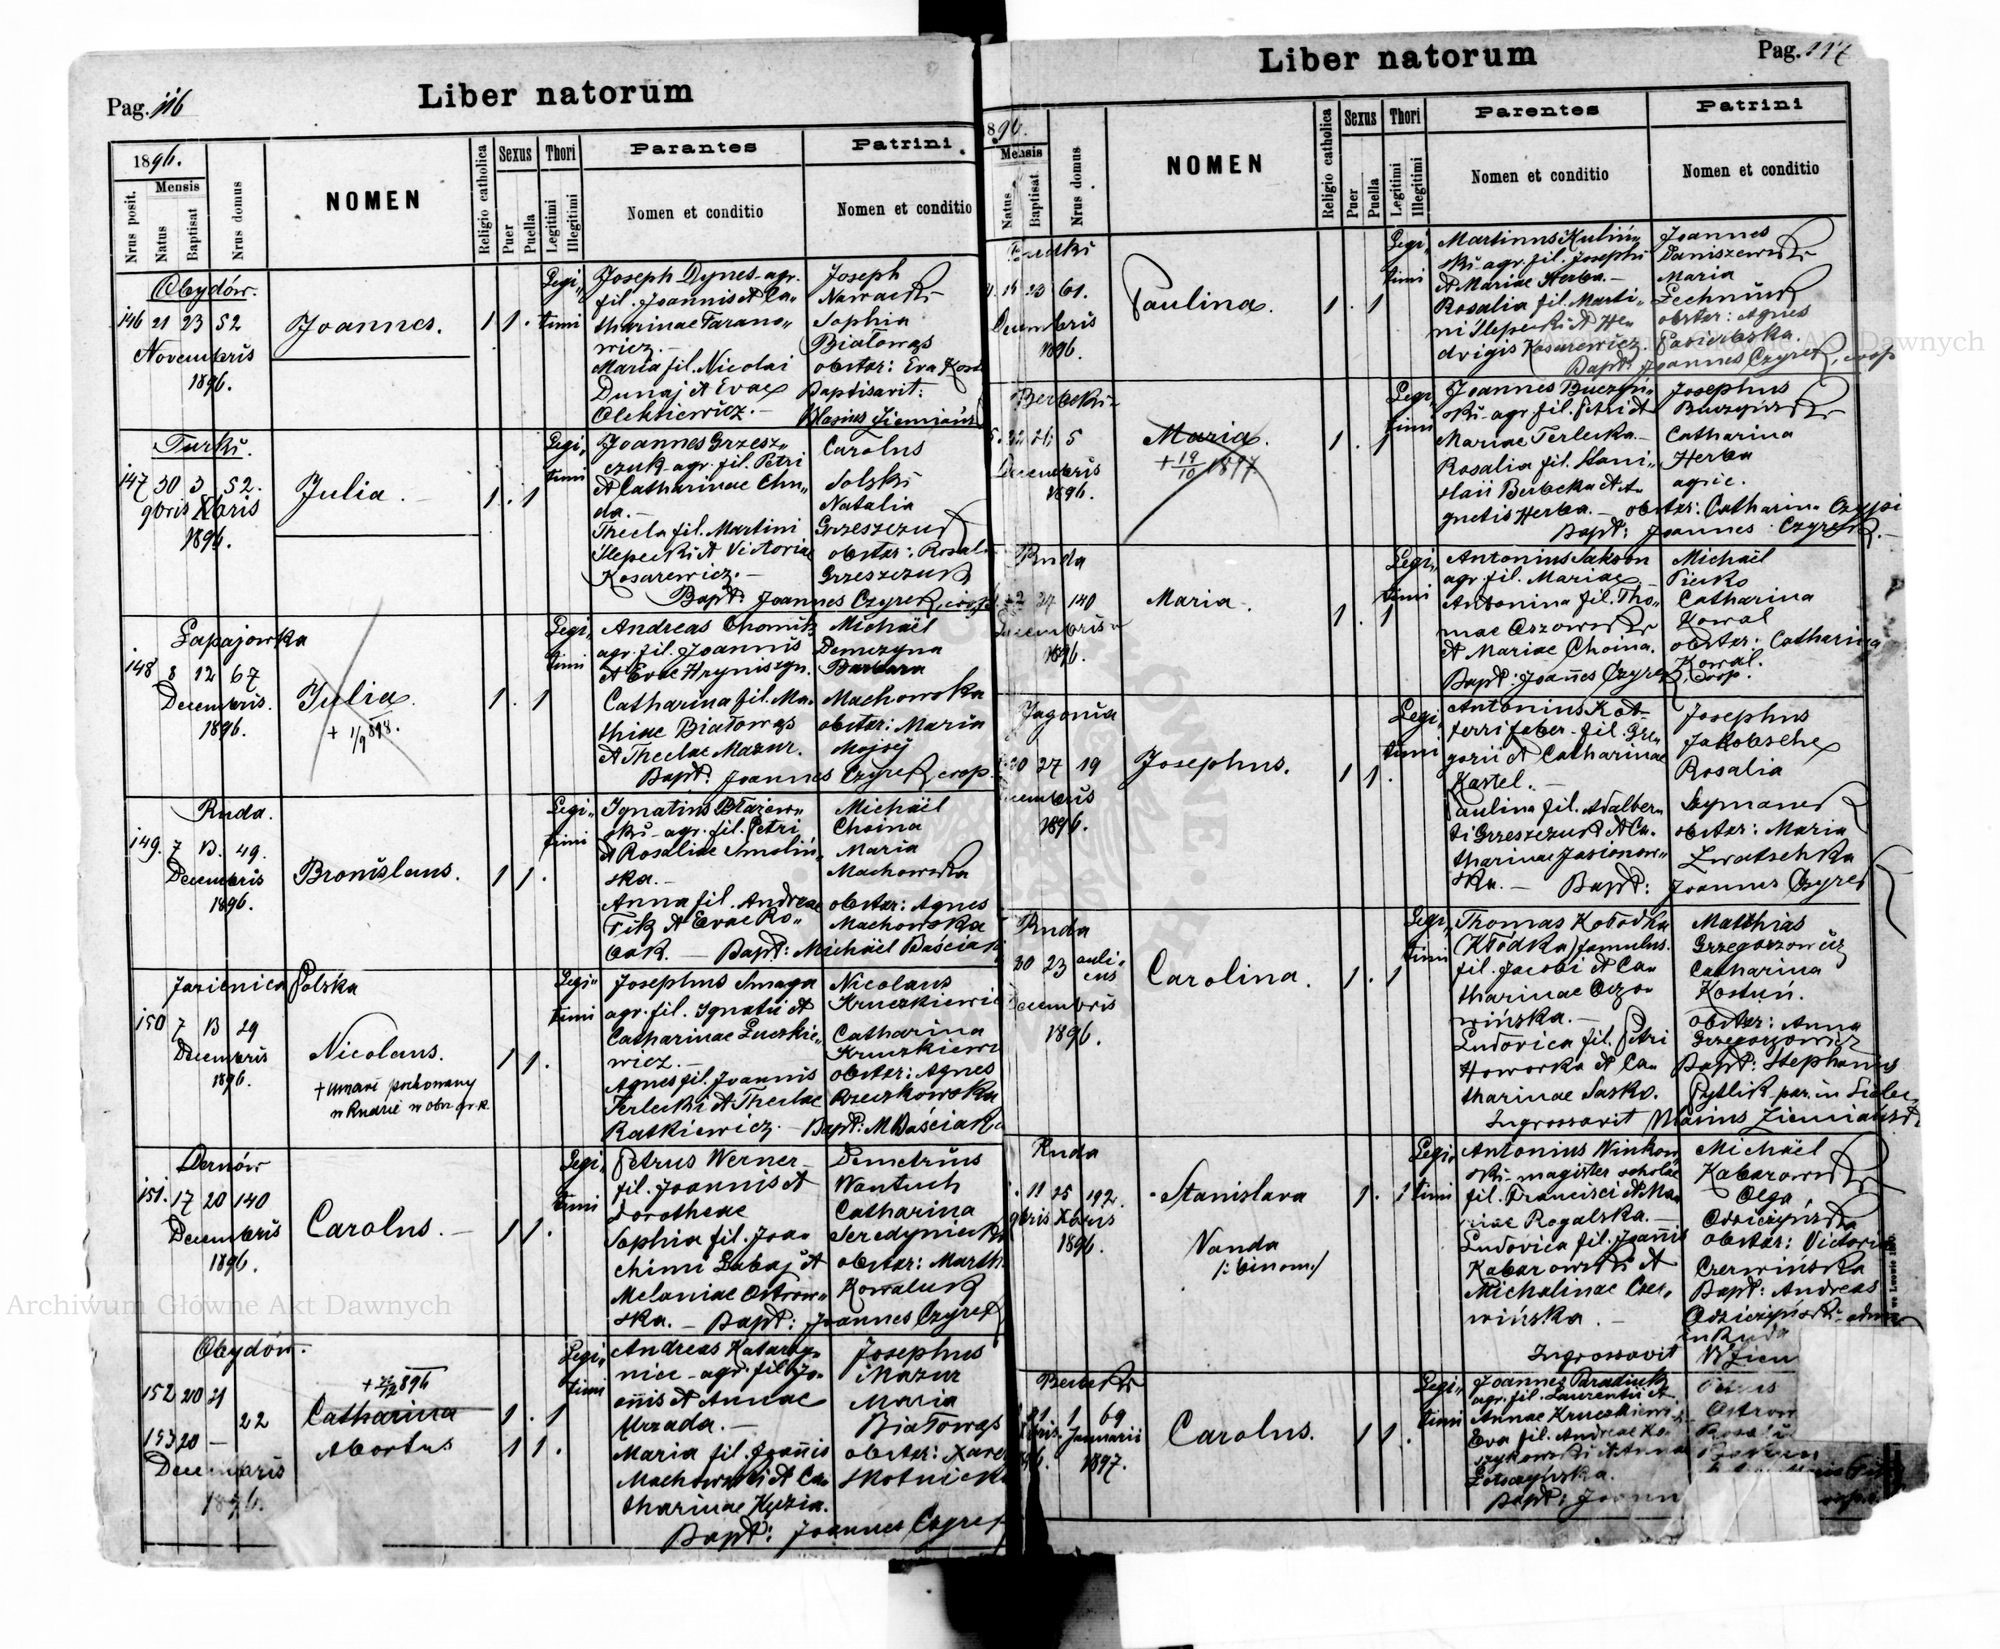 Pag. 116
Liber natorum
1896.
Nrus posit.
Mensis
Natus
Baptisat
Nrus domus
NOMEN
Religio catholica
Sexus
Puer
Puella
Thori
Legitimi
Illegitimi
Parantes
Nomen et conditio
Patrini
Nomen et conditio
Obydów.
146 21 23 52
Novembris
1896.
Joannes.
1 1 .
Legi-
timi
Joseph Dynes- agr.
fil. Joannis et Ca-
tharinae Tarano-
wicz.-
Maria fil. Nicolai
Dunaj et Evae
Olchkiewicz.-
Joseph
Nawacki
Sophia
Białowąs
obster: Eva
Baptisavit:
Blasius
Turki.
147 30 3 52.
9bris Xbris
1896.
Julia.-
1 . 1
Legi-
timi
Joannes Grzesz-
czuk-agr. fil. Petri
et Catharinae Chu-
da.-
Thecla fil. Martini
Ślepecki et Victoriae
Kosarewicz.-
Carolus
Solski
Natalia
Grzeszczuk
obster: Rosal
Grzeszczuk
Bapt: Joannes Czyrek, coop.
Łapajówka
148 8 12 67
Decembris.
1896.
Julia.
+ 1/9 898.
1 . 1
Legi-
timi
Andreas Chomik
agr. fil. Joannis
et Evae Hryniszyn.
Catharina fil. Ma-
thiae Białowąs
et Theclae Mazur.
Michäel
Demczyna
Barbara
Machowska
obster: Maria
Mojsej
Bapt: Joannes Czyrek, coop.
Ruda.
149. 7 13. 49.
Decembris
1896.
Bronislaus.
1 1 .
Legi-
timi
Ignatius Błażew-
ski- agr. fil. Petri
et Rosaliae Smolin-
ska.-
Anna fil. Andreae
Fik et Evae Ro-
bak.-
Michäel
Choma
Maria
Machowska
obster: Agnes
Machowska
Bapt: Michäel Baściak
Jazienica Polska
150 7 13 29
Decembris
1896.
Nicolaus.
+ umarł pochowany
w Rudzie w obrz gr. k.
1 1 .
Legi-
timi
Josephus Smaga
agr. fil. Ignatii et
Catharinae Łuczkie-
wicz.-
Agnes fil. Joannis
Terlecki et Theclae
Ratkiewicz.-
Nicolaus
Kruczkiewicz
Catharina
Kruczkiewi
obster: Agnes
Rzeczkowska
Bapt: M Baściak
Dernów
151. 17 20 140
Decembris
1896.
Carolus.-
1 1 .
Legi-
timi
Petrus Werner-
fil. Joannis et
Dorotheae
Sophia fil. Joa-
chimi Łabaj et
Melaniae Ostrow-
ska.-
Demetrius
Wantuch
Catharina
Seredynicka
obster: Marth.
Kowaluk
Bapt: Joannes Czyrek
Obydów.
152 20 21
22
153 20 -
Decembris
1896.
+ 896
Catharina
Abortus
1 . 1
1 1 .
Legi-
timi
Andreas Katarzy-
nicz- agr. fil. Jo-
annis et Annae
Mrzada.-
Maria fil. Joannis
Machowski et Ca-
tharinae Kędzia.
Josephus
Mazur
Maria
Białowąs
obster: Xave
Skotnicka
Bapt: Joannes Czyrek
Liber natorum
Pag. 117
1896.
Mensis
Natus
Baptisat
Nrus domus
NOMEN
Religio catholica
Sexus
Puer
Puella
Thori
Legitimi
Illegitimi
Parentes
Nomen et conditio
Patrini
Nomen et conditio
Budki
23 61.
Decembris
1896.
Paulina.
1 . 1
Legi-
timi
Martinus Kuliń-
ski-agr. fil. Josephi
et Mariae Herba.-
Rosalia fil. Marti-
ni Ślepecki et He-
dvigis Kosarewicz.
Joannes
Daniszewski
Maria
Lechniuk
obster: Agnes
Bapt: Joannes Czyrek, coop
Berbeki-
5
Decembris
1896.
Maria.
+ 19/10 1897
1 . 1
Legi-
timi
Joannes Buczyń-
ski-agr. fil. Petri et
Mariae Terlecka.-
Rosalia fil. Stani-
slaii Berbeka et A-
gnetis Herba.-
Josephus
Buczyński
Catharina
Herba
agric.
obster: Catharina
Bapt: Joannes Czyrek.-
Ruda
140
Decembris
1896.
Maria.
1 . 1
Legi-
timi
Antonius Sakson
agr. fil. Mariae.-
Antonina fil. Tho-
mae Oszowski
et Mariae Choina.
Michäel
Pieko
Catharina
Kowal
obster: Catharina
Kowal.
Bapt: Joannes Czyrek, coop.
Jagonia
20 27 19
Decembris
1896.
Josephus.
1 1 .
Legi-
timi
Antonius Kot-
ferri faber- fil. Gre-
gorii et Catharinae
Kastel.-
Paulina fil. Adalber-
ti Grzeszczuk et Ca-
tharinae Jasionow-
ska.-
Josephus
Jakobsche
Rosalia
Szymanek
obster: Maria
Kwatschka
Bapt: Joannes Czyrek
Ruda
20 23 auli-
cus
Decembris
1896.
Carolina.
1 . 1
Legi-
timi
Thomas Kołodka
(Kłódka) famulus.
fil. Jacobi et Ca-
tharinae Oczo-
wińska.-
Ludovica fil. Petri
Howorka et Ca-
tharinae Sasko.
Matthias
Grzegorzowicz
Catharina
Kostuń.
obster: Anna
Grzegorzowicz
Bapt: Stephanus
Pytlik par. in
Ingrossavit Blasius
Ruda
11 25 192.
9bris Xbris
1896.
Stanislava
Vanda
/: binom:/
1 . 1
Legi-
timi
Antonius Winkow
ski- magister scholae
fil. Francisci et Ma-
riae Rogalska.-
Ludovica fil. Joannis
Kabarowski et
Michalinae Czer-
wińska.-
Michäel
Kabarowski
Olga
Odzieżyńska
obster: Victoria
Czerwińska
Bapt: Andreas
Odzieżyński
in Ruda
Ingrossavit
Berbeki
21 1 69
Xbris Januarii
1897.
Carolus.
1 1 .
Legi-
timi
Joannes Paradiuk
agr. fil. Laurentii et
Annae Kruczkiewicz
Eva fil. Andreae Ko-
Petrus
Ostrow
Bapt: Joann
Archiwum Główne Akt Dawnych